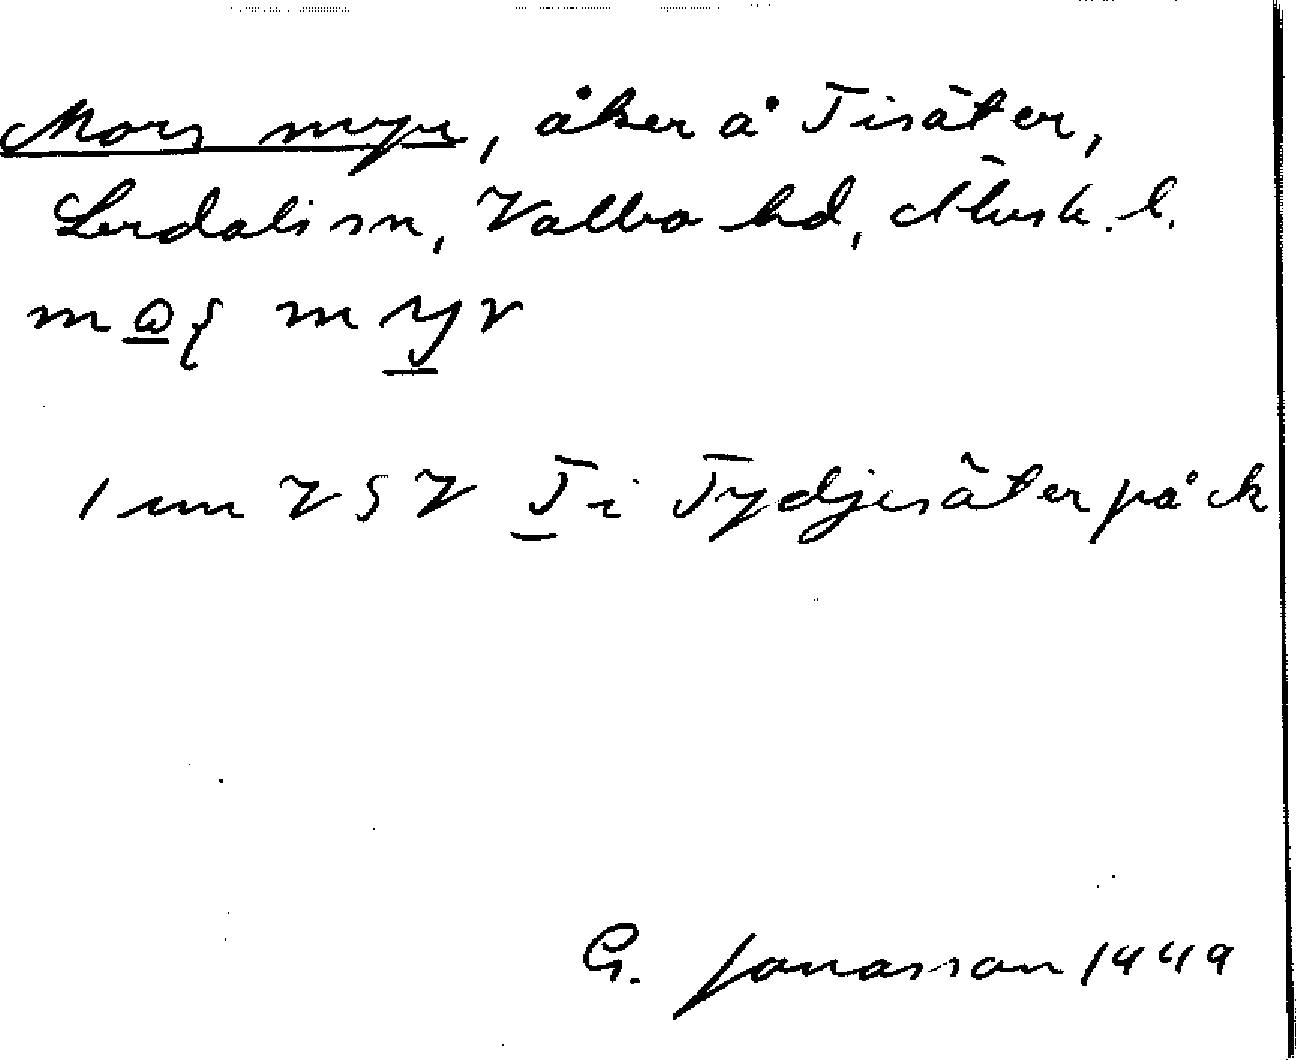 Mors myr, åker å Tisäter,
Lerdals sn, Valbo hd, Älvsb. l.
mɷʃ myr
1 mm VSV T i Tydjesäter på ek
G. Jonasson 1949